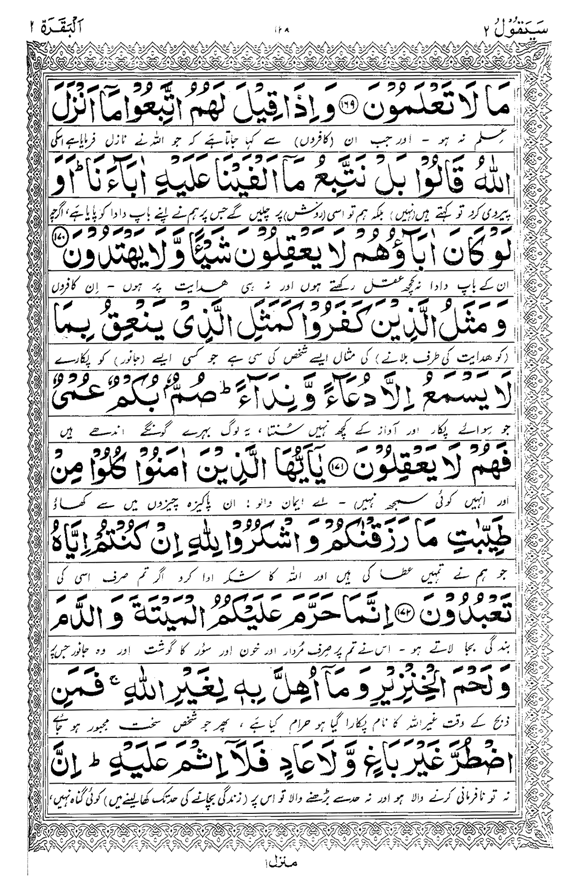 سَيَقُولُ ٢
١٢٨
اَلْبَقَرَة ٢
مَا لَا تَعْلَمُوْنَ ﴿١٦٩﴾ وَ اِذَا قِيْلَ لَهُمُ اتَّبِعُوْا مَاۤ اَنْزَلَ
علم نہ ہو - اور جب ان (کافروں) سے کہا جاتا ہے کہ جو اللہ نے نازل فرمایا ہے اسکی
اللّٰهُ قَالُوْا بَلْ نَتَّبِعُ مَاۤ اَلْفَيْنَا عَلَيْهِ اٰبَآءَنَا ؕ اَوَ
پیروی کرو تو کہتے ہیں (نہیں) بلکہ ہم تو اسی (روش) پر چلیں گے جس پر ہم نے اپنے باپ دادا کو پایا ہے، اگرچہ
لَوْ كَانَ اٰبَآؤُهُمْ لَا يَعْقِلُوْنَ شَيْـًٔا وَّ لَا يَهْتَدُوْنَ ﴿١٧٠﴾
ان کے باپ دادا نہ کچھ عقل رکھتے ہوں اور نہ ہی ھدایت پر ہوں - ان کافروں
وَ مَثَلُ الَّذِيْنَ كَفَرُوْا كَمَثَلِ الَّذِيْ يَنْعِقُ بِمَا
(کو ھدایت کی طرف بلانے) کی مثال ایسے شخص کی سی ہے جو کسی ایسے (جانور) کو پکارے
لَا يَسْمَعُ اِلَّا دُعَآءً وَّ نِدَآءً ؕ صُمٌّۢ بُكْمٌ عُمْيٌ
جو سوائے پکار اور آواز کے کچھ نہیں سنتا، یہ لوگ بہرے گونگے اندھے ہیں
فَهُمْ لَا يَعْقِلُوْنَ ﴿١٧١﴾ يٰۤاَيُّهَا الَّذِيْنَ اٰمَنُوْا كُلُوْا مِنْ
اور انہیں کوئی سمجھ نہیں - اے ایمان والو! ان پاکیزہ چیزوں میں سے کھاؤ
طَيِّبٰتِ مَا رَزَقْنٰكُمْ وَ اشْكُرُوْا لِلّٰهِ اِنْ كُنْتُمْ اِيَّاهُ
جو ہم نے تمہیں عطا کی ہیں اور اللہ کا شکر ادا کرو اگر تم صرف اسی کی
تَعْبُدُوْنَ ﴿١٧٢﴾ اِنَّمَا حَرَّمَ عَلَيْكُمُ الْمَيْتَةَ وَ الدَّمَ
بندگی بجا لاتے ہو - اس نے تم پر صرف مُردار اور خون اور سؤر کا گوشت اور وہ جانور جس پر
وَ لَحْمَ الْخِنْزِيْرِ وَ مَاۤ اُهِلَّ بِهٖ لِغَيْرِ اللّٰهِ ۚ فَمَنِ
ذبح کے وقت غیر اللہ کا نام پکارا گیا ہو حرام کیا ہے، پھر جو شخص سخت مجبور ہو جائے
اضْطُرَّ غَيْرَ بَاغٍ وَّ لَا عَادٍ فَلَاۤ اِثْمَ عَلَيْهِ ؕ اِنَّ
نہ تو نافرمانی کرنے والا ہو اور نہ حد سے بڑھنے والا تو اس پر (زندگی بچانے کی حد تک کھا لینے میں) کوئی گناہ نہیں،
منزل ١